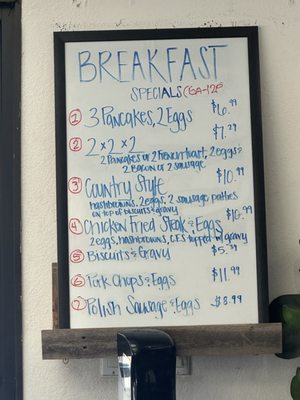 BREAKFAST
SPECIALS (6A-12P)
1 3 Pancakes, 2 Eggs $6.99
2 2x2x2 $7.29
2 Pancakes or 2 french toast, 2 eggs &
2 Bacon or 2 sausage
3 Country Style $10.99
hashbrowns, 2 eggs, 2 sausage patties
on top of biscuits & gravy
4 Chicken Fried Steak & Eggs $10.99
2 eggs, hashbrowns, CFS topped w/ gravy
5 Biscuits & Gravy $5.39
6 Pork Chops & Eggs $11.99
7 Polish Sausage & Eggs $8.99